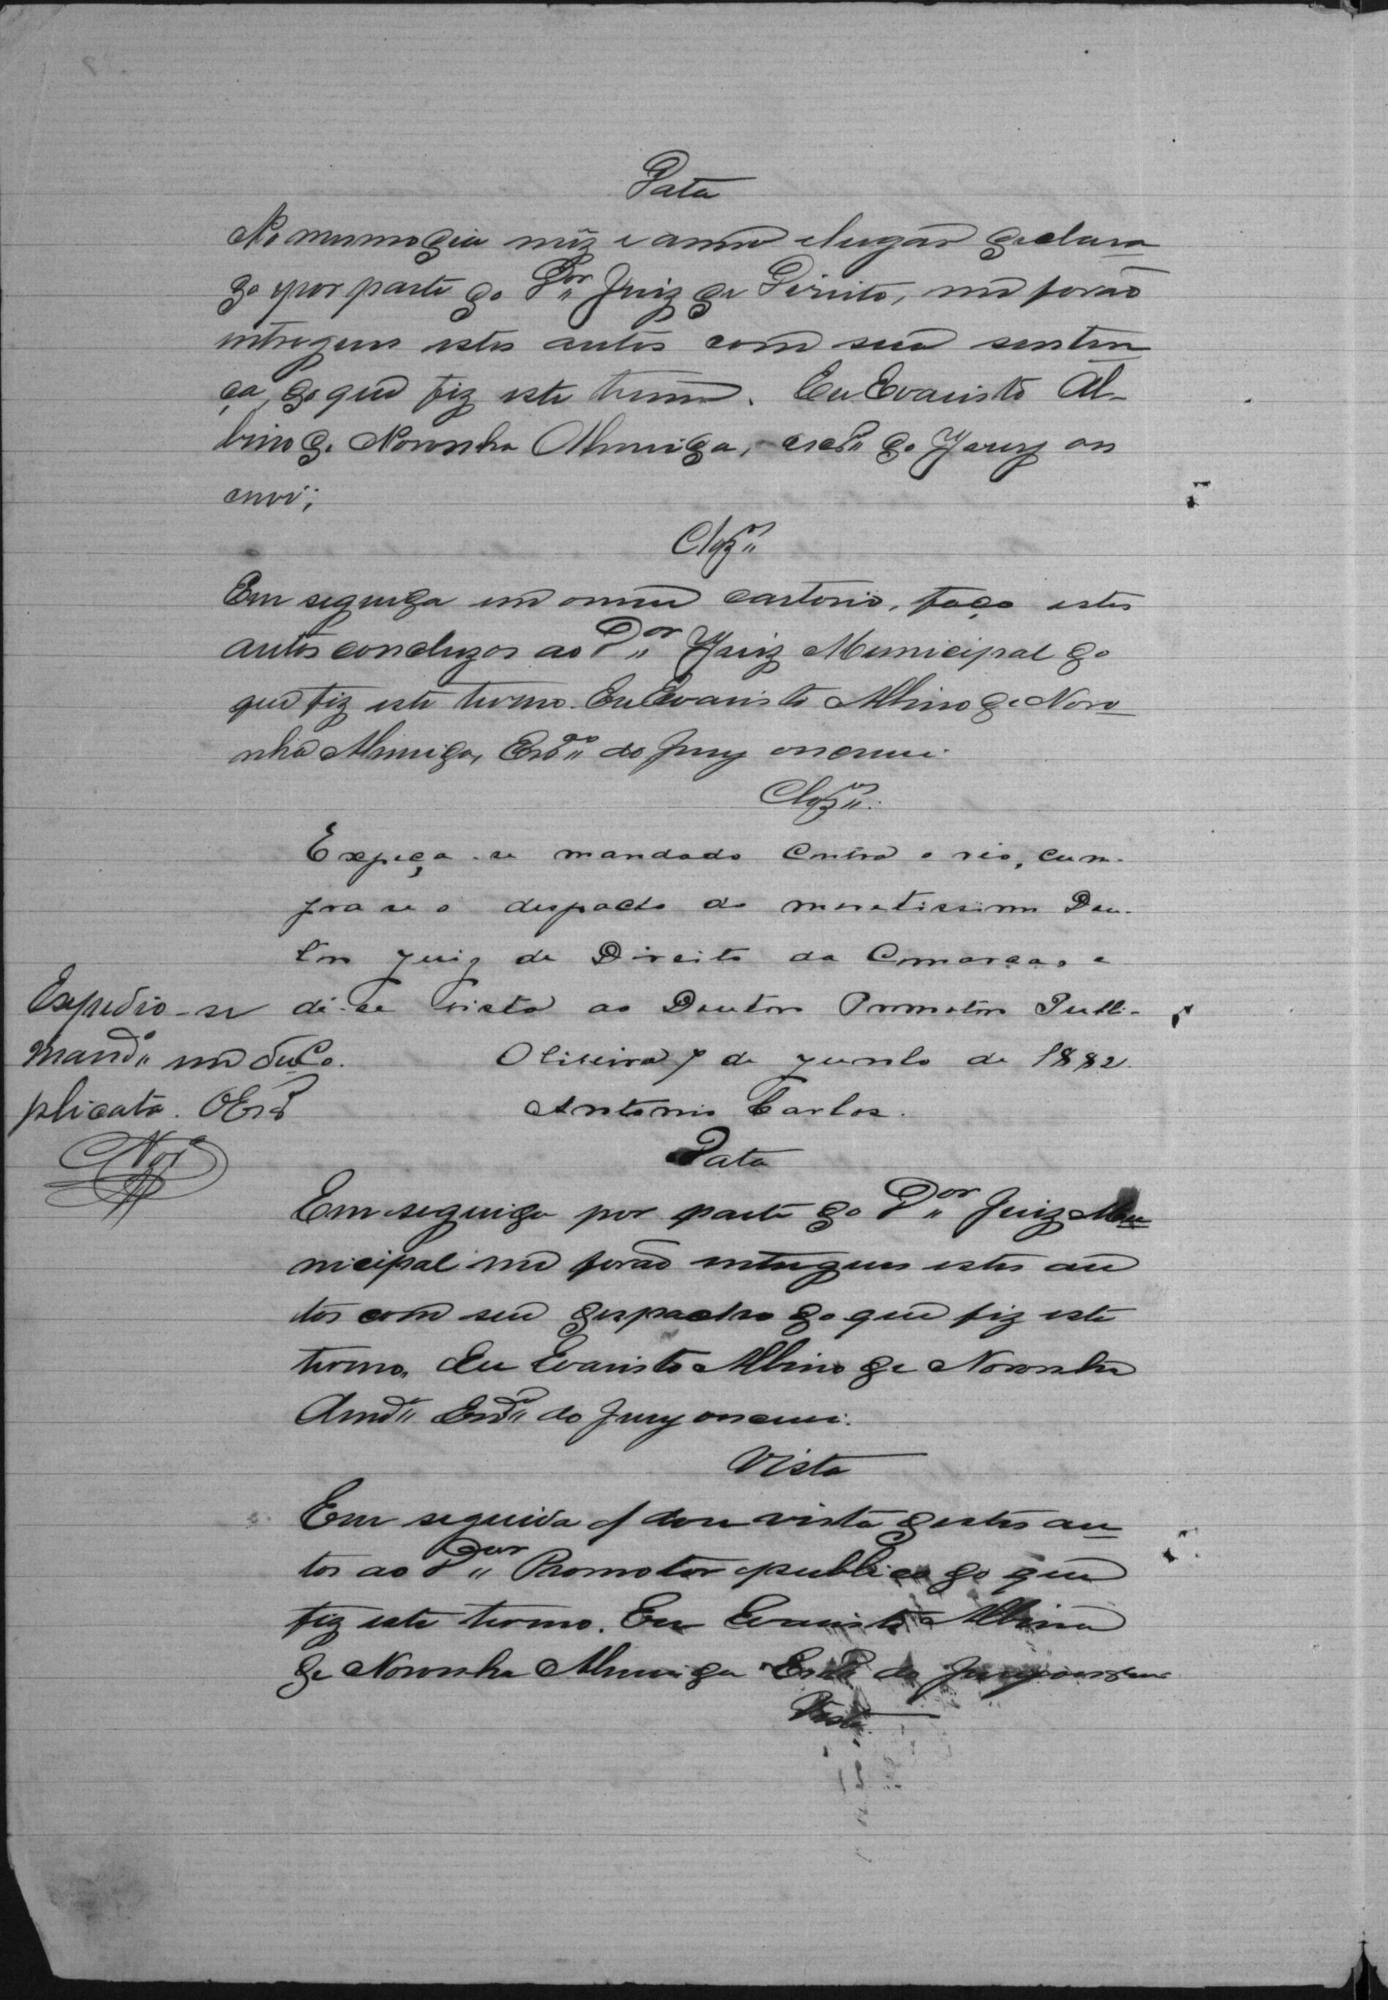 Data
No mesmo dia mêz e anno e lugar declara
do e por parte do D.or Juiz de Direito, me forão
entregues estes autos com sua senten
ça, do que fiz este termo. Eu Evaristo Al-
bino de Noronha Almeida, escr.m do Jury os
crevi;
Clz.os
Em seguida em o meu cartorio, faço estes
autos concluzos ao D.or Juiz Municipal do
que fiz este termo. Eu Evaristo Albino de Noro
nha Almeida, Escr.m do Jury o escrevi.
Clz.os
Expeça-se mandado contra o réo, cum-
pra se o despacho do meretissimo Dou-
tor Juiz de Direito da Comarca, e
dê-se vista ao Doutor Promotor Publi-
co. Oliveira 7 de Junho de 1882.
Antonio Carlos.
Expedio-se
mand.o em du
plicata. O Escr.
Nor
Data
Em seguida por parte do D.or Juiz Mu
nicipal me forão entregues estes au
tos com seu despacho do que fiz este
termo. Eu Evaristo Albino de Noronha
Almd.a Escr.m do Jury o escrevi.
Vista
Em seguida dou vista destes au
tos ao D.or Promotor publico do que
fiz este termo. Eu Evaristo Albino
de Noronha Almeida Escr. do Jury o escrevi
Vista